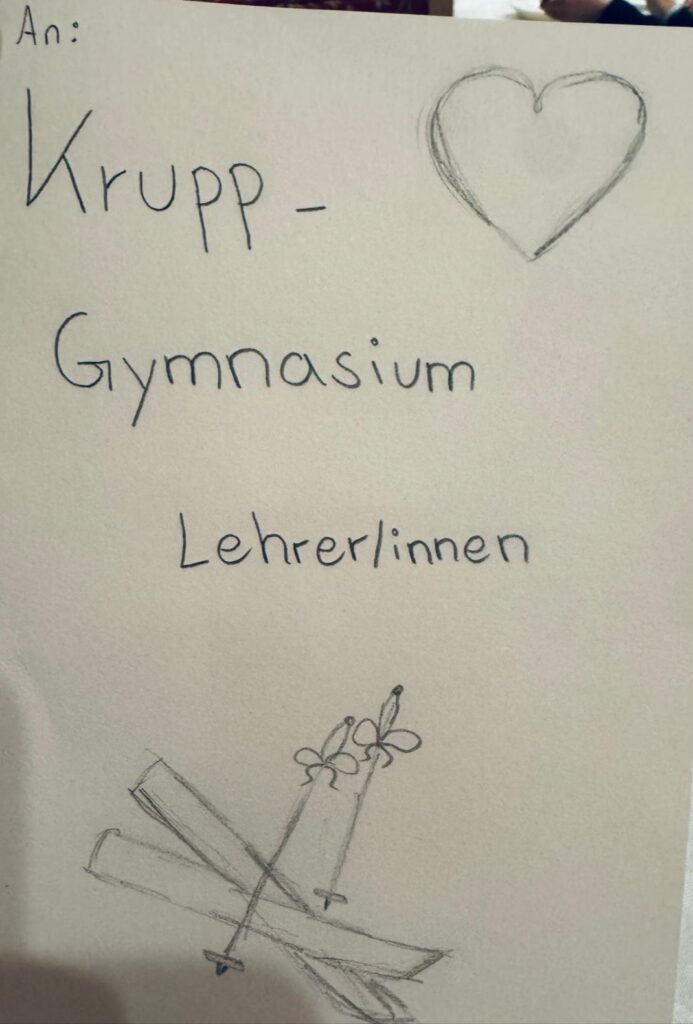 An:
Krupp-
Gymnasium
Lehrer/innen